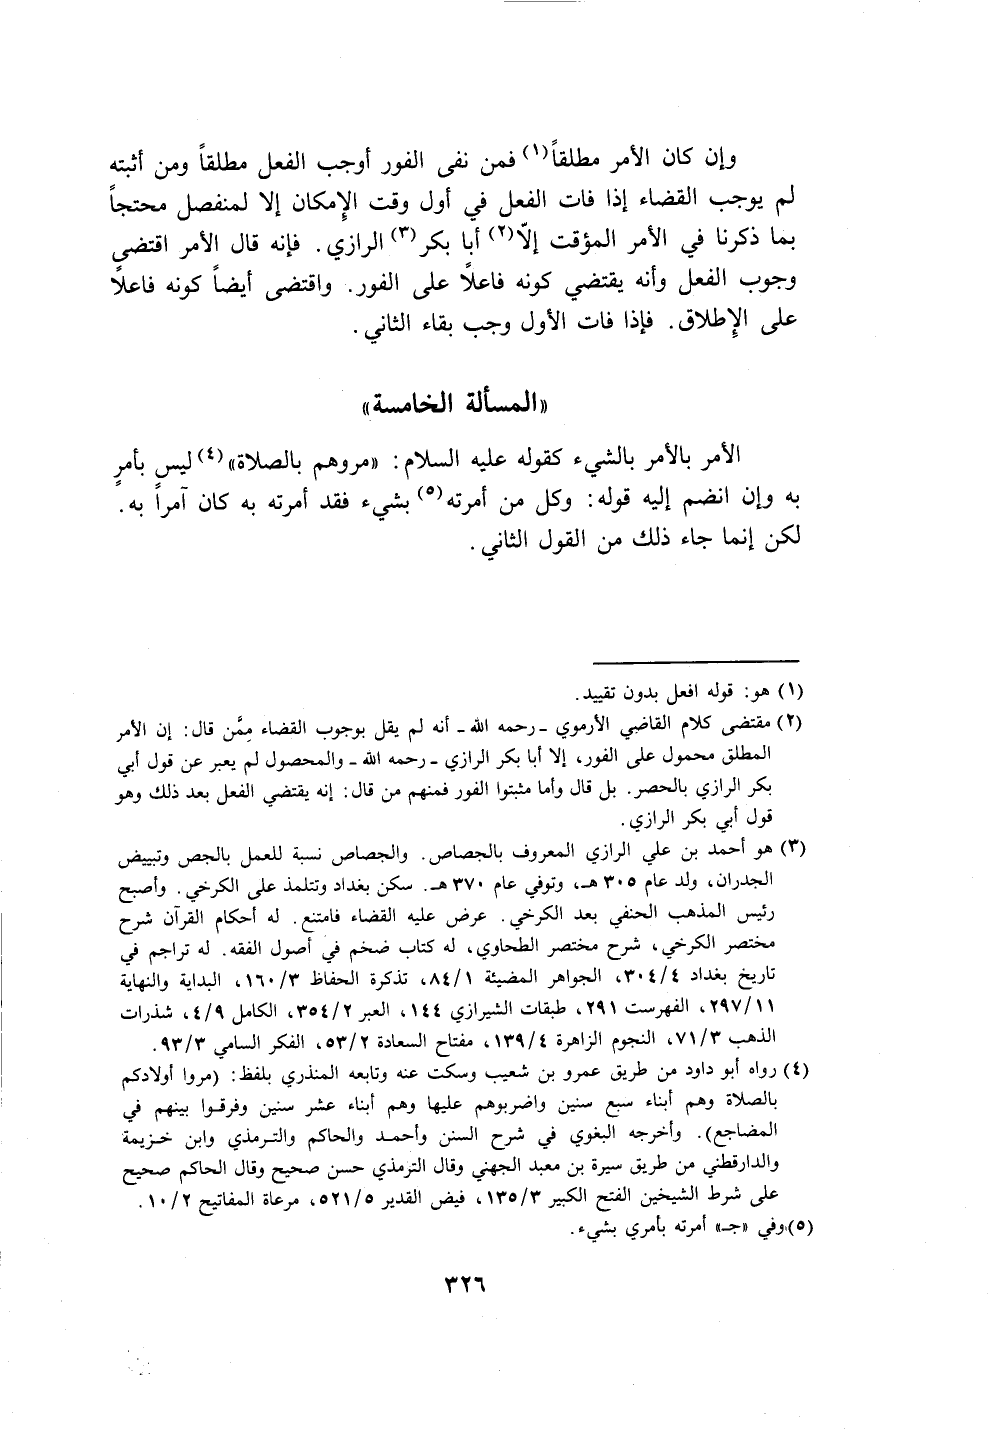 وإن كان الأمر مطلقاً(١) فمن نفى الفور أوجب الفعل مطلقاً ومن أثبته
لم يوجب القضاء إذا فات الفعل في أول وقت الإمكان إلا لمنفصل محتجاً
بما ذكرنا في الأمر المؤقت إلّا(٢) أبا بكر(٣) الرازي. فإنه قال الأمر اقتضى
وجوب الفعل وأنه يقتضي كونه فاعلاً على الفور. واقتضى أيضاً كونه فاعلاً
على الإطلاق. فإذا فات الأول وجب بقاء الثاني.
«المسألة الخامسة»
الأمر بالأمر بالشيء كقوله عليه السلام: «مروهم بالصلاة»(٤) ليس بأمرٍ
به وإن انضم إليه قوله: وكل من أمرته(٥) بشيء فقد أمرته به كان آمراً به.
لكن إنما جاء ذلك من القول الثاني.
(١) هو: قوله افعل بدون تقييد.
(٢) مقتضى كلام القاضي الأرموي ـ رحمه الله ـ أنه لم يقل بوجوب القضاء مِمَّن قال: إن الأمر
المطلق محمول على الفور، إلا أبا بكر الرازي ـ رحمه الله ـ والمحصول لم يعبر عن قول أبي
بكر الرازي بالحصر. بل قال وأما مثبتوا الفور فمنهم من قال: إنه يقتضي الفعل بعد ذلك وهو
قول أبي بكر الرازي.
(٣) هو أحمد بن علي الرازي المعروف بالجصاص. والجصاص نسبة للعمل بالجص وتبييض
الجدران، ولد عام ٣٠٥ هـ، وتوفي عام ٣٧٠ هـ. سكن بغداد وتتلمذ على الكرخي. وأصبح
رئيس المذهب الحنفي بعد الكرخي. عرض عليه القضاء فامتنع. له أحكام القرآن شرح
مختصر الكرخي، شرح مختصر الطحاوي، له كتاب ضخم في أصول الفقه. له تراجم في
تاريخ بغداد ٣٠٤/٤، الجواهر المضيئة ٨٤/١، تذكرة الحفاظ ١٦٠/٣، البداية والنهاية
٢٩٧/١١، الفهرست ٢٩١، طبقات الشيرازي ١٤٤، العبر ٣٥٤/٢، الكامل ٤/٩، شذرات
الذهب ٧١/٣، النجوم الزاهرة ١٣٩/٤، مفتاح السعادة ٥٣/٢، الفكر السامي ٩٣/٣.
(٤) رواه أبو داود من طريق عمرو بن شعيب وسكت عنه وتابعه المنذري بلفظ: (مروا أولادكم
بالصلاة وهم أبناء سبع سنين واضربوهم عليها وهم أبناء عشر سنين وفرقوا بينهم في
المضاجع). وأخرجه البغوي في شرح السنن وأحمد والحاكم والترمذي وابن خزيمة
والدارقطني من طريق سيرة بن معبد الجهني وقال الترمذي حسن صحيح وقال الحاكم صحيح
على شرط الشيخين الفتح الكبير ١٣٥/٣، فيض القدير ٥٢١/٥، مرعاة المفاتيح ١٠/٢.
(٥) وفي «جـ» أمرته بأمري بشيء.
٣٢٦